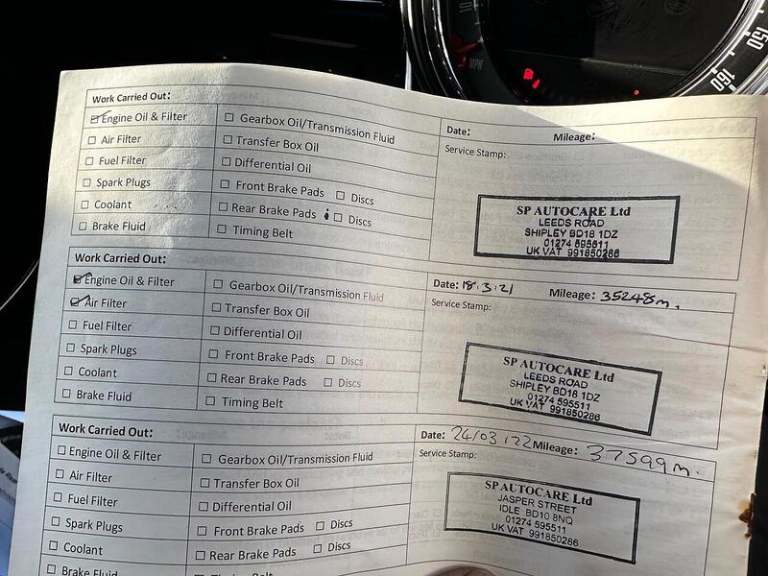 150
160
Work Carried Out:
☑ Engine Oil & Filter ☐ Gearbox Oil/Transmission Fluid Date: Mileage:
☐ Air Filter ☐ Transfer Box Oil Service Stamp:
☐ Fuel Filter ☐ Differential Oil
☐ Spark Plugs ☐ Front Brake Pads ☐ Discs
☐ Coolant ☐ Rear Brake Pads ☐ Discs
☐ Brake Fluid ☐ Timing Belt
SP AUTOCARE Ltd
LEEDS ROAD
SHIPLEY BD18 1DZ
01274 595511
UK VAT 991850286
Work Carried Out:
☑ Engine Oil & Filter ☐ Gearbox Oil/Transmission Fluid Date: 18.3.21 Mileage: 35248m.
☑ Air Filter ☐ Transfer Box Oil Service Stamp:
☐ Fuel Filter ☐ Differential Oil
☐ Spark Plugs ☐ Front Brake Pads ☐ Discs
☐ Coolant ☐ Rear Brake Pads ☐ Discs
☐ Brake Fluid ☐ Timing Belt
SP AUTOCARE Ltd
LEEDS ROAD
SHIPLEY BD18 1DZ
01274 595511
UK VAT 991850286
Work Carried Out:
☐ Engine Oil & Filter ☐ Gearbox Oil/Transmission Fluid Date: 24/03/22 Mileage: 37599m.
☐ Air Filter ☐ Transfer Box Oil Service Stamp:
☐ Fuel Filter ☐ Differential Oil
☐ Spark Plugs ☐ Front Brake Pads ☐ Discs
☐ Coolant ☐ Rear Brake Pads ☐ Discs
☐ Brake Fluid ☐ Timing Belt
SP AUTOCARE Ltd
JASPER STREET
IDLE BD10 8NQ
01274 595511
UK VAT 991850286